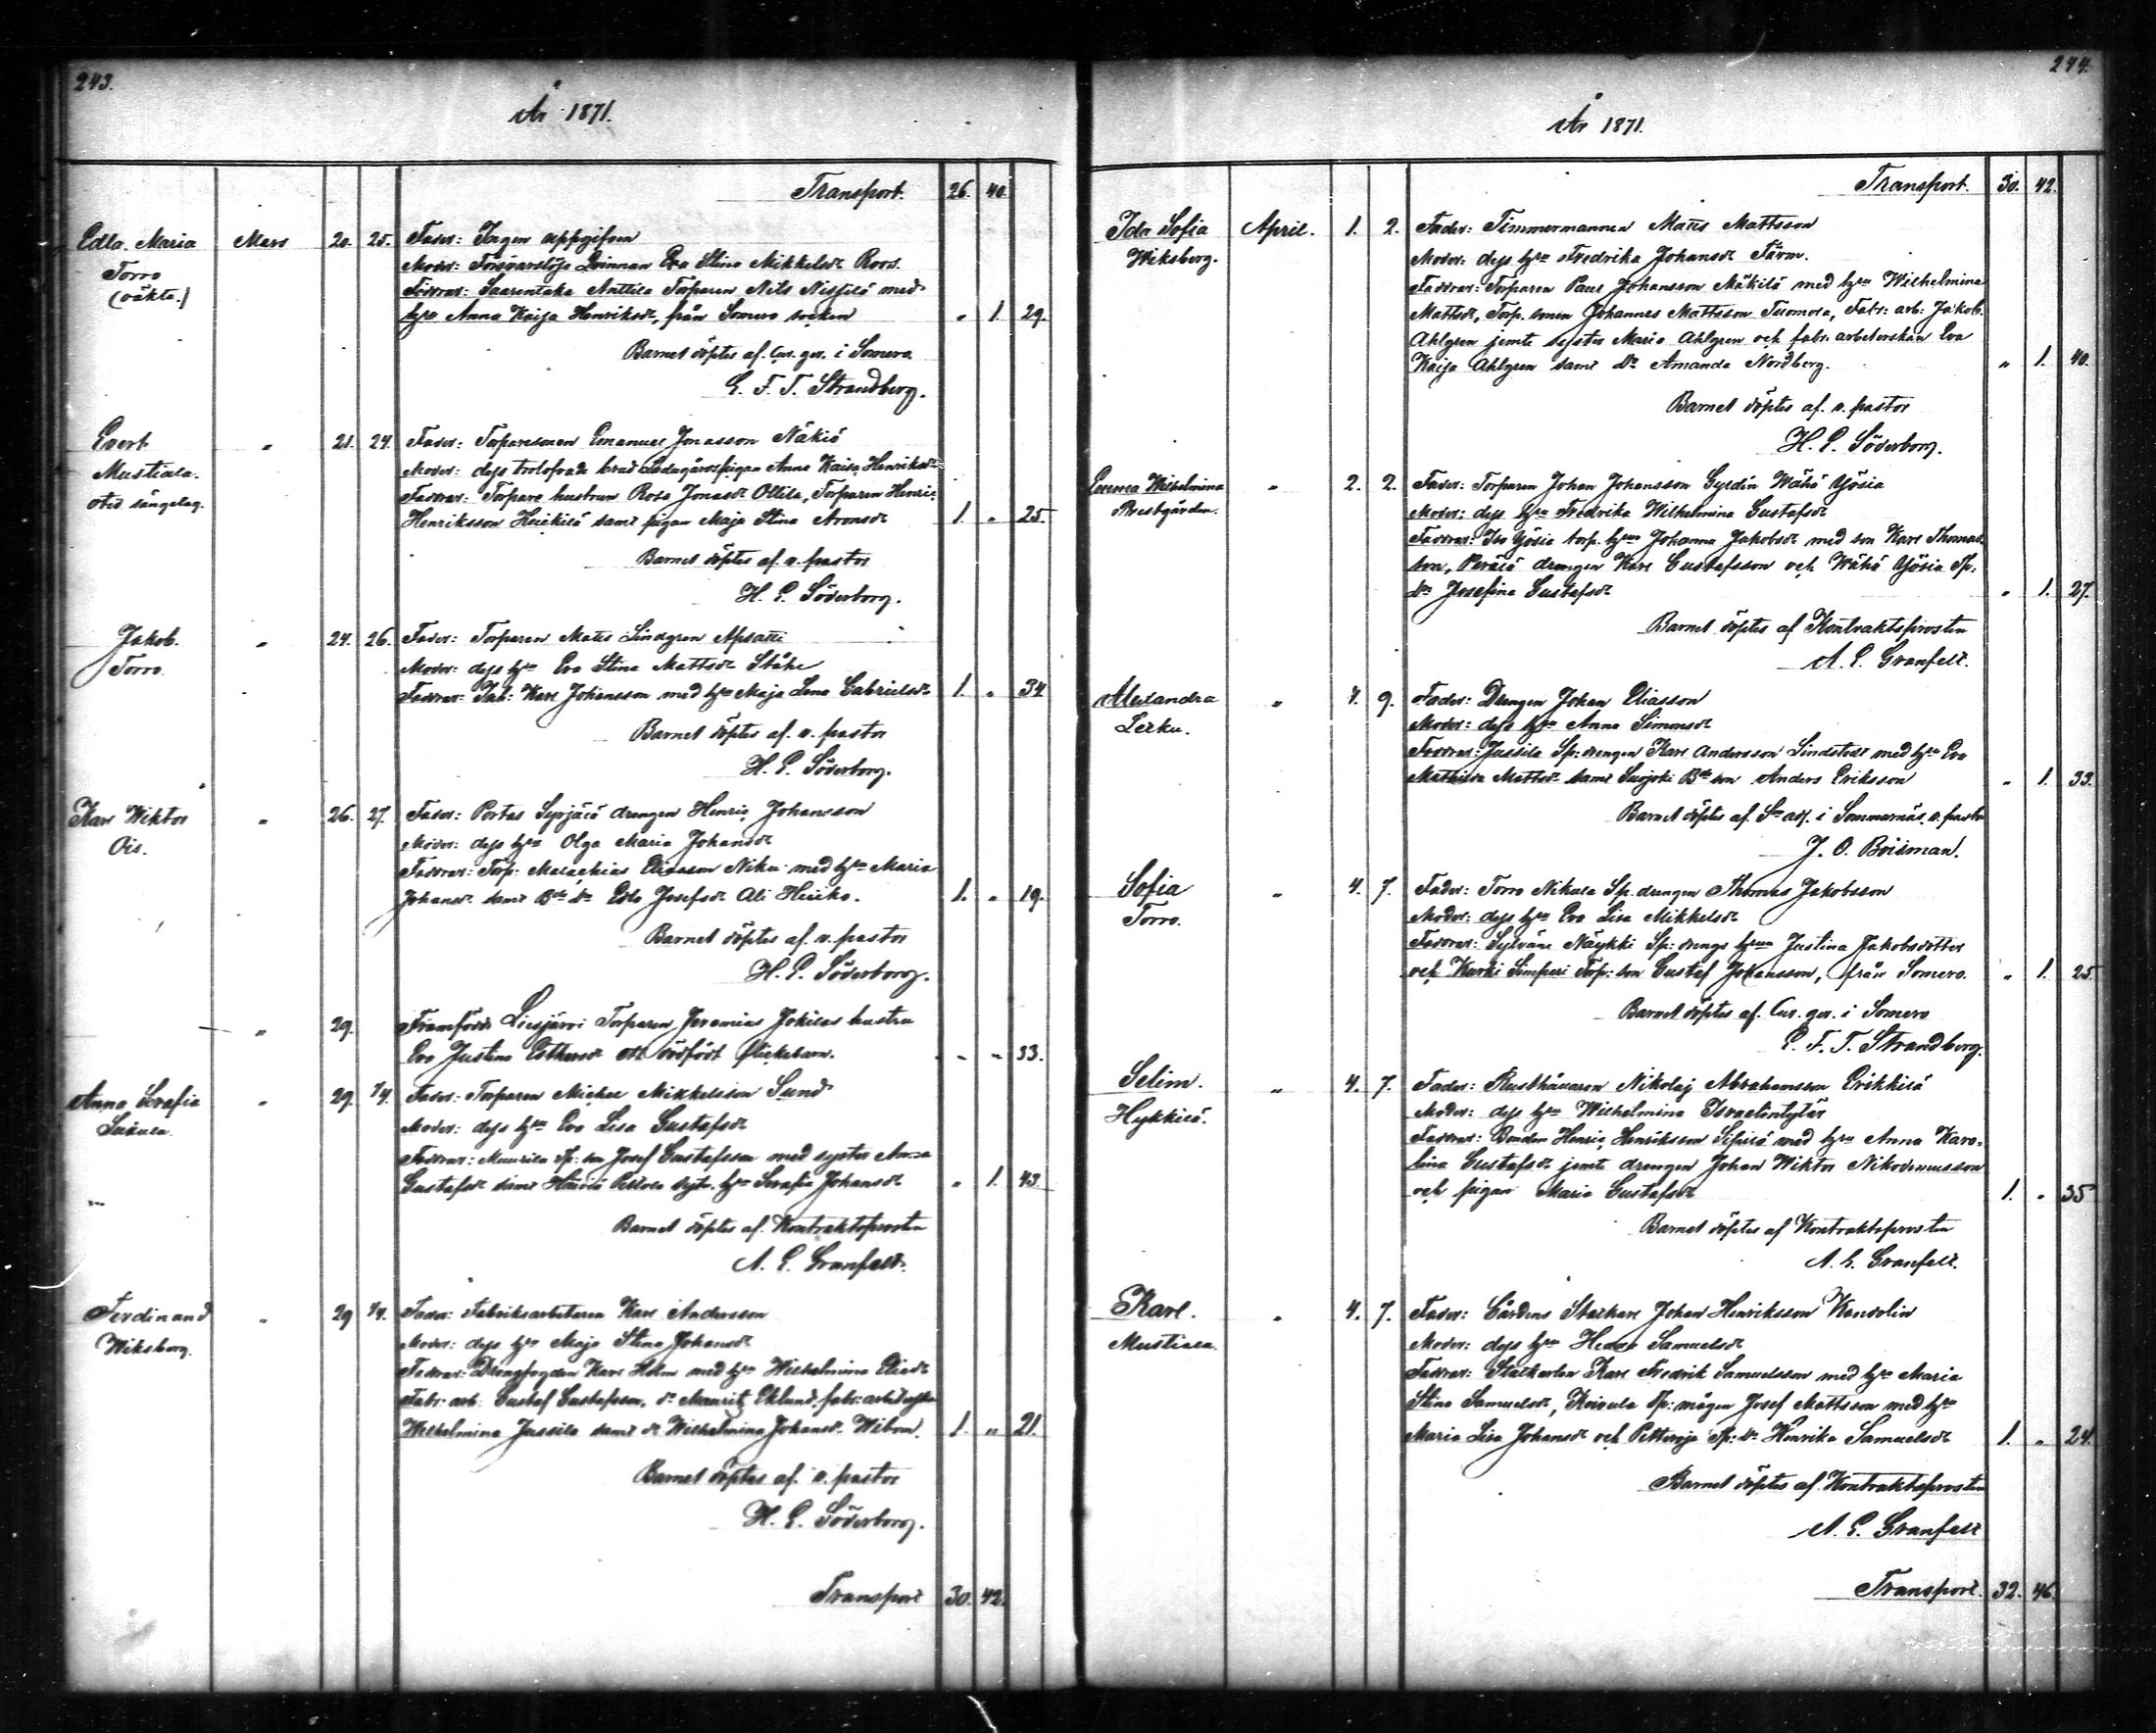 243.
År 1871.
Transport. 26. 40.
Edla Maria Mars 20. 25. Fader: Ingen uppgifven
Torro Moder: Försvarslösa Qvinnan Eva Stina Mikkelsdr Roos.
(oäkta.) Faddrar: Saarentaka Anttila Torparen Nils Nissilä med
hu Anna Kaisa Henriksdr, från Somero socken " 1. 29.
Barnet döptes af. Cur. ger. i Somero
E. F. T. Strandberg.
Evert " 21. 24. Fader: Torparesonen Emanuel Jonasson Näkiä
Mustiala. Moder: dess trolofvade brud Ladugårdspigan Anna Kaisa Henriksdr
otid. sängelag. Faddrar: Torpare hustrun Rosa Jonasdr Ollila, Torparen Henric
Henriksson samt pigan Maja Stina Aronsdr 1. " 25.
Barnet döptes af. v. pastor
H. E. Söderborg.
Jakob. " 24. 26. Fader: Torparen Matts Lindgren
Torro. Moder: dess hu Eva Stina Mattsdr Ståhl
Faddrar: Karl Johansson med hu Maja Lena Gabrielsdr 1. " 34
Barnet döptes af. v. pastor
H. E. Söderborg.
Karl Wiktor " 26. 27. Fader: Portas Syrjälä drengen Henric Johansson
Ois. Moder: dess hu Olga Maria Johansdr
Faddrar: Torp: Malachias Eliasson Niku med hu Maria
Johansdr samt Bde dr Edla Josefsdr Ali Heiko. 1. " 19.
Barnet döptes af. v. pastor
H. E. Söderborg.
— " 29. Framfödde Liesjärvi Torparen Jeremias Jokilas hustru
Eva Justina Esthersdr ett dödfödt flickebarn. - " 33.
Anna Serafia " 29. 1/4. Fader: Torparen Michel Mikkelsson Sund
Sukula. Moder: dess hu Eva Lisa Gustafsdr
Faddrar: Tp: son Josef Gustafsson med syster Anna
Gustafsdr samt hu Serafia Johansdr " 1. 43.
Barnet döptes af. Kontraktsprosten
A. E. Granfelt.
Ferdinand " 29 1/4. Fader: Fabriksarbetaren Karl Andersson
Wiksberg. Moder: dess hu Maja Stina Johansdr
Faddrar: Drengfogden Karl Holm med hu Wilhelmina Eliedr
Fabr: arb. Gustaf Gustafsson, do Mauritz Eklund, fabr: arbeterskan
Wilhelmina Jussila samt do Wilhelmina Johansdr Wibom. 1. " 21.
Barnet döptes af. v. pastor
H. E. Söderborg.
Transport 30. 42.
244.
År 1871.
Transport. 30. 42.
Ida Sofia April. 1. 2. Fader: Timmermannen Matts Mattsson
Wiksberg. Moder: dess hu Fredrika Johansdr Färm.
Faddrar: Torparen Paul Johansson Mäkilä med hu Wilhelmina
Mattsdr, Torp. sonen Johannes Mattsson Tuomola, Fabr: arb: Jakob
Ahlgren jemte syster Maria Ahlgren och fabr: arbeterskan Eva
Kaisa Ahlgren samt do Amanda Nordberg. " 1. 40.
Barnet döptes af. v. pastor
H. E. Söderborg.
Emma Wilhelmina " 2. 2. Fader: Torparen Johan Johansson Gyldin Wähä Yösiä
Prestgården. Moder: dess hu Fredrika Wilhelmina Gustafsdr
Faddrar: Iso Yösiä torp. hu Johanna Jakobsdr med son Karl Thomas-
son, Perälä drengen Karl Gustafsson och Wähä Yösiä Tp:
dr Josefina Gustafsdr " 1. 27.
Barnet döptes af Kontraktsprosten
A. E. Granfelt.
Alexandra " 4. 9. Fader: Drengen Johan Eliasson
Letku. Moder: dess hu Anna Simonsdr
Faddrar: Jussila Sp: drengen Karl Andersson Lindstedt med hu Eva
Mathilda Mattsdr samt Suojoki Bde son Anders Eriksson " 1. 33.
Barnet döptes af Sn adj. i Sommarnäs, v. pastor
J. O. Boisman.
Sofia " 4. 7. Fader: Torro Nikula Sp. drengen Thomas Jakobsson
Torro. Moder: dess hu Eva Lisa Mikkelsdr
Faddrar: Sylväne Näykki Sp: drengs hu Justina Jakobsdotter
och Kurki Simpuri Torp: son Gustaf Johansson, från Somero. " 1. 25.
Barnet döptes af. Cur. ger. i Somero
E. F. T. Strandberg.
Selim. " 4. 7. Fader: Rusthållaren Nikolaj Abrahamsson Erikkilä
Hykkilä. Moder: dess hu Wilhelmina Israelintytär
Faddrar: Bonden Henric Henriksson Sipilä med hu Anna Karo-
lina Gustafsdr jemte drengen Johan Wiktor Nikodemusson
och pigan Maria Gustafsdr 1. " 35
Barnet döptes af Kontraktsprosten
A. E. Granfelt.
Karl. " 4. 7. Fader: Gårdens Statkarl Johan Henriksson Wandolin
Mustiala. Moder: dess hu Hedda Samuelsdr
Faddrar: Statkarlen Karl Fredrik Samuelsson med hu Maria
Stina Samuelsdr, Koivula Tp: mågen Josef Mattsson med hu
Maria Lisa Johansdr och Tp: dr Henrika Samuelsdr 1. " 24.
Barnet döptes af Kontraktsprosten
A. E. Granfelt
Transport. 32. 46.